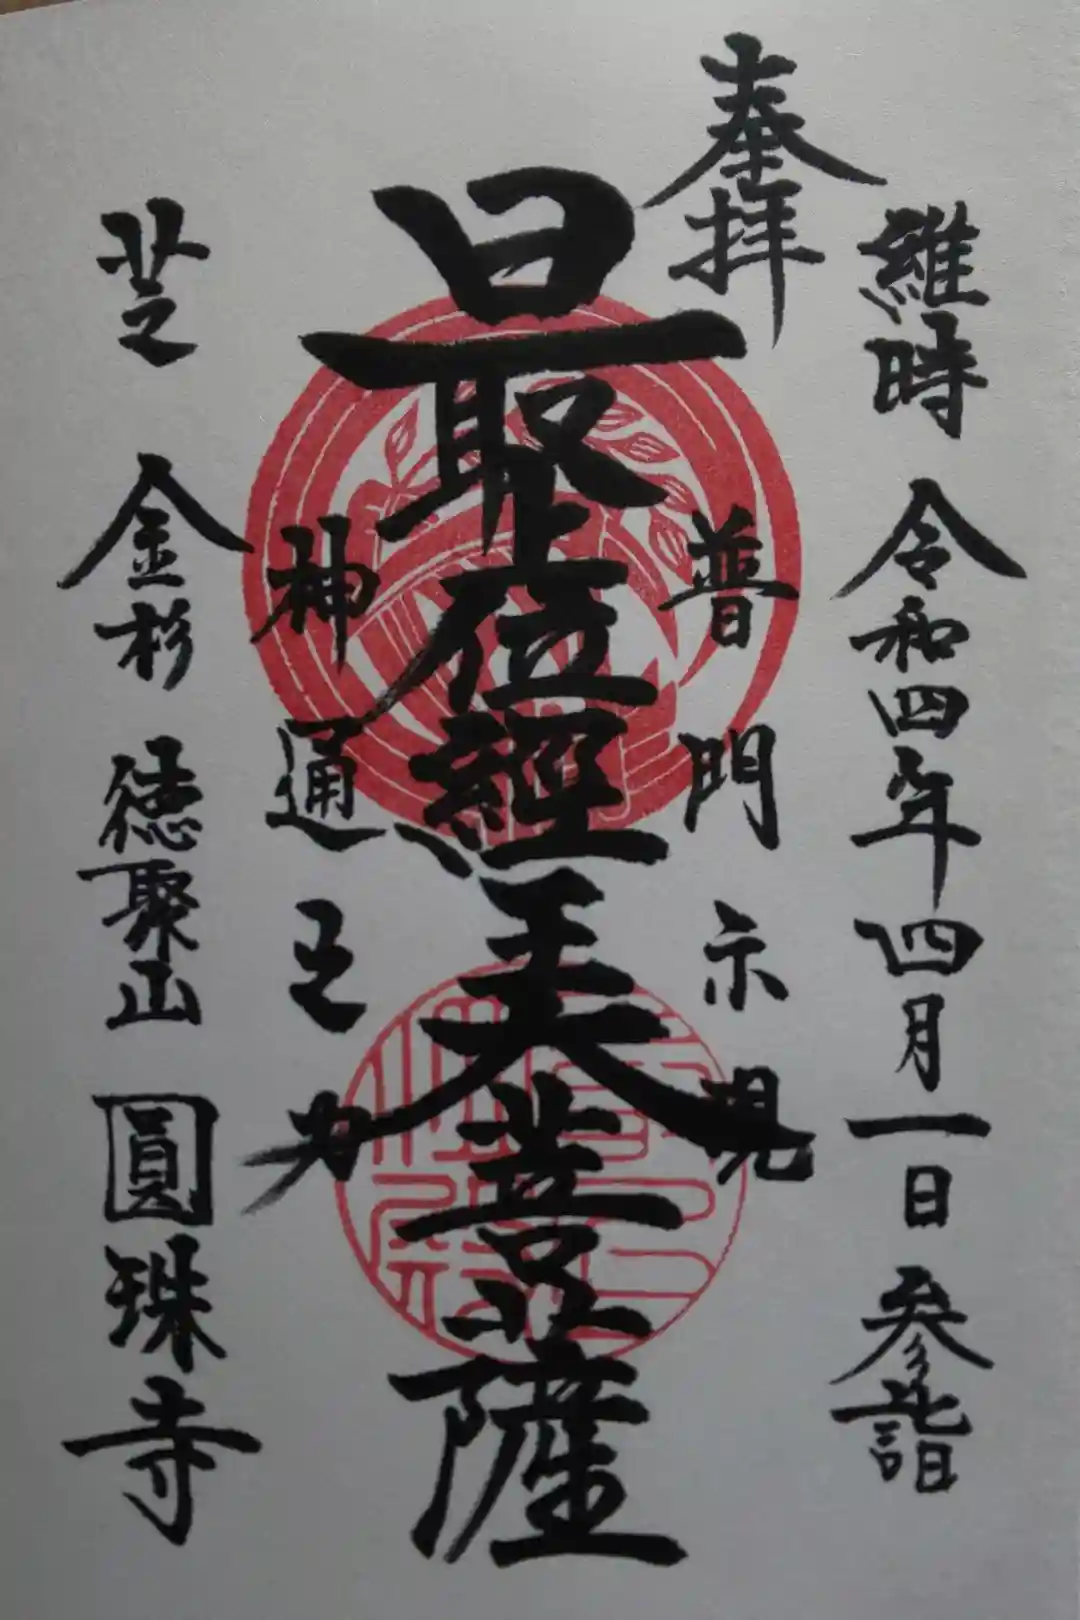 維時 令和四年四月一日 参詣
奉拝
普門示現
最上位經王大菩薩
神通之力
芝 金杉 徳聚山 圓珠寺